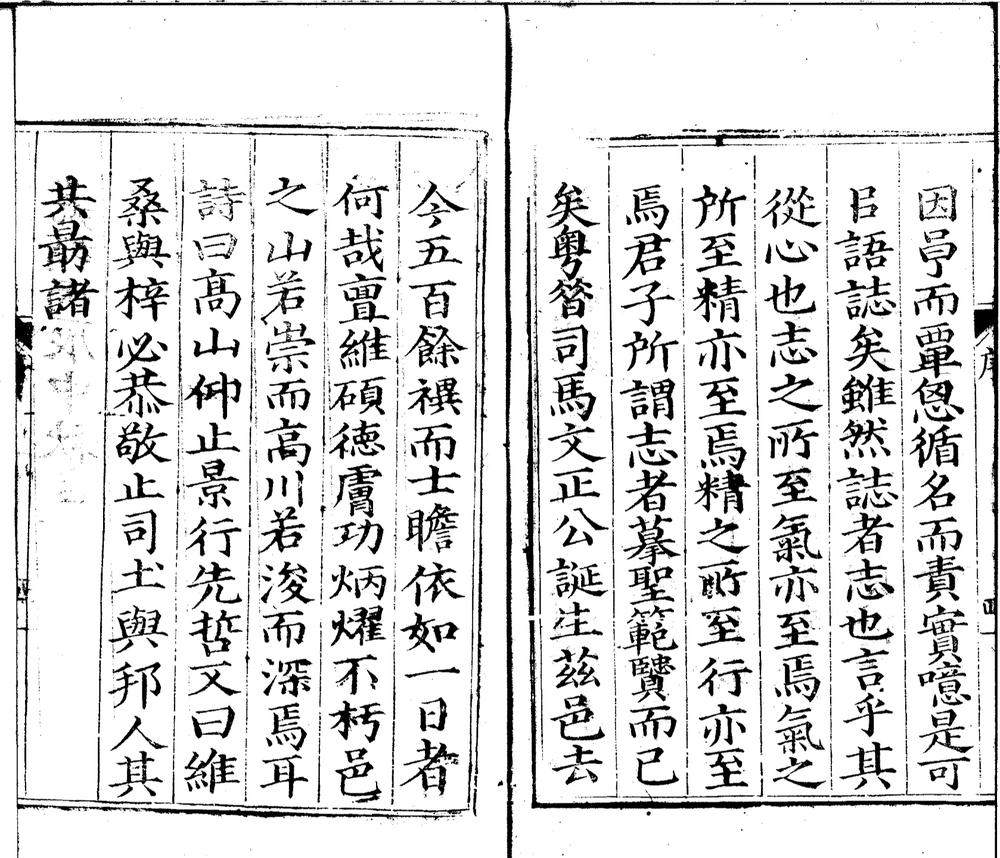 序
因咢而覃恩循名而責實噫是可
㠯語誌矣雖然誌者志也言乎其
從心也志之所至氣亦至焉氣之
所至精亦至焉精之所至行亦至
焉君子所謂志者摹聖範賢而已
矣粤昝司馬文正公誕生茲邑去
今五百餘禩而士瞻依如一日者
何哉亶維碩德膚功炳燿不朽邑
之山若崇而高川若浚而深焉耳
詩曰高山仰止景行先哲又曰維
桑與梓必恭敬止司土與邦人其
共最諸